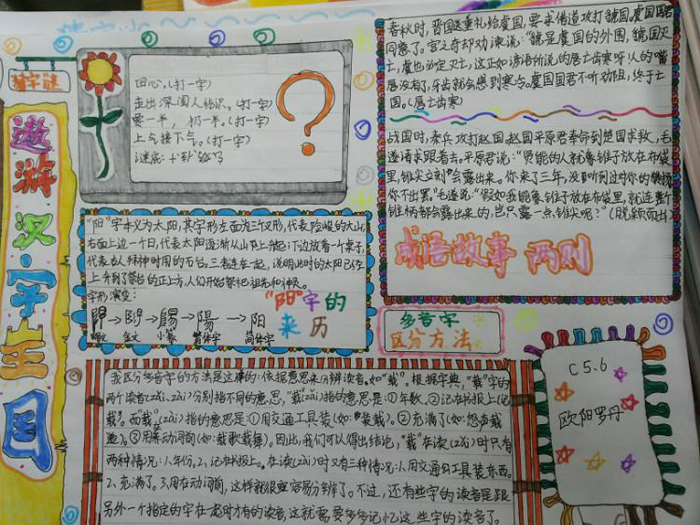 猜字谜
遨游汉字王国
田心。(打一字)
走出深闺人结识。(打一字)
要一半，扔一半。(打一字)
上气接下气。(打一字)
谜底：
春秋时，晋国送重礼给虞国，要求借道攻打虢国，虞国国君
同意了。宫之奇却劝谏说：“虢是虞国的外围，虢国灭
亡，虞也必定灭亡，这正如谚语所说的唇亡齿寒呀，人的嘴
唇没有了，牙齿就会感到寒冷。虞国国君不听劝阻，终于亡
国。(唇亡齿寒)
战国时，秦兵攻打赵国，赵国平原君奉命到楚国求救，毛
遂请求跟着去。平原君说：“贤能的人就象锥子放在布袋
里，锥尖立刻会露出来。你来了三年，没听到过对你的赞扬
你不出罢。”毛遂说：“假如我能象锥子放在布袋里，就连整个
锥柄都会露出来的，岂只露一点锥尖呢？”(脱颖而出)
成语故事 两则
“阳”字本义为太阳，其字形左面为三个叉形，代表险峻的大山
右面上边一个日，代表太阳逐渐从山界上升起；下边放着一个案子，
代表古人祭神时用的石台。三者连在一起，说明此时的太阳已经
上升到了祭台的正上方，人们开始祭祀祖先和神侯。
字形演变：
“阳”字的
来历
→ → → 陽 → 阳
金文 小篆 繁体字 简体字
多音字
区分方法
我区分多音字的方法是这样的：依据意思来分辨读音。如“载”，根据字典，“载”字的
两个读音(zǎi)(zài)分别指不同的意思，“载”(zǎi)指的意思是：①年数，②记在书报上(记
载)。而载(zài)指的意思是：①用交通工具装(如：装载)。②充满了(如：怨声载
道)。③用乘动词前(如：载歌载舞)。因此，我们可以得出结论，“载”在读(zǎi)时只有
两种情况：1、年份。2、记在书报上。在读(zài)时又有三种情况：1、用交通工具装东西。
2、充满了。3、用在动词前，这样就很容易分辨了。不过，还有些字的读音是跟
另外一个指定的字在一起时才有的读音，这就需要多多记忆这些字的读音了。
C5.6
欧阳罗丹